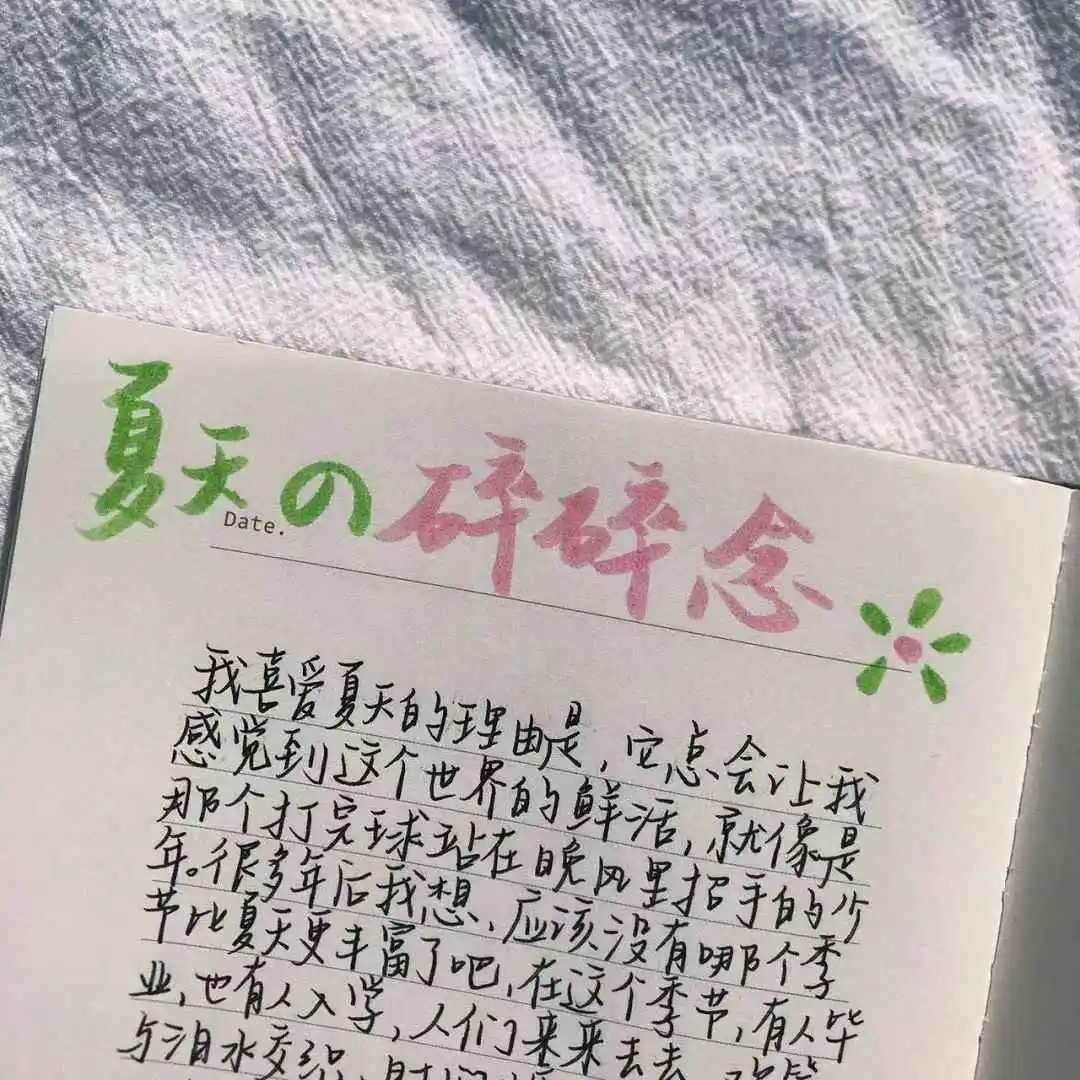 夏天の碎碎念
Date.
我喜爱夏天的理由是,它总会让我
感觉到这个世界的鲜活,就像是
那个打完球站在晚风里招手的少
年。很多年后我想,应该没有哪个季
节比夏天更丰富了吧,在这个季节,有人毕
业,也有人入学,人们来来去去,欢笑
与泪水交织,